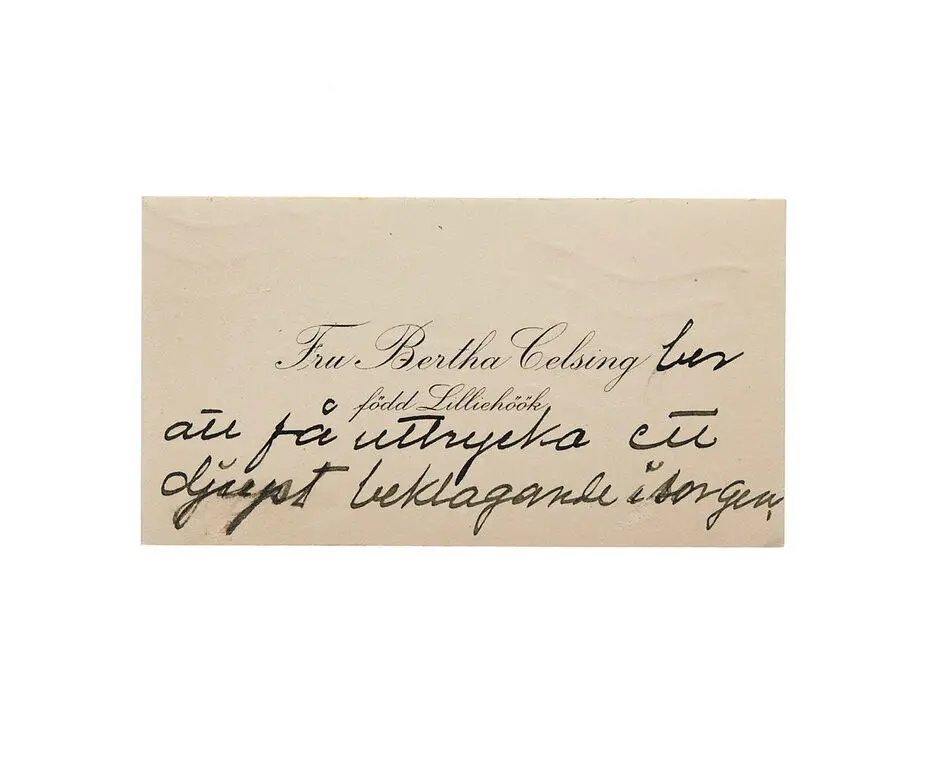 Fru Bertha Celsing ber
född Lilliehöök
att få uttrycka ett
djupt beklagande i sorgen,